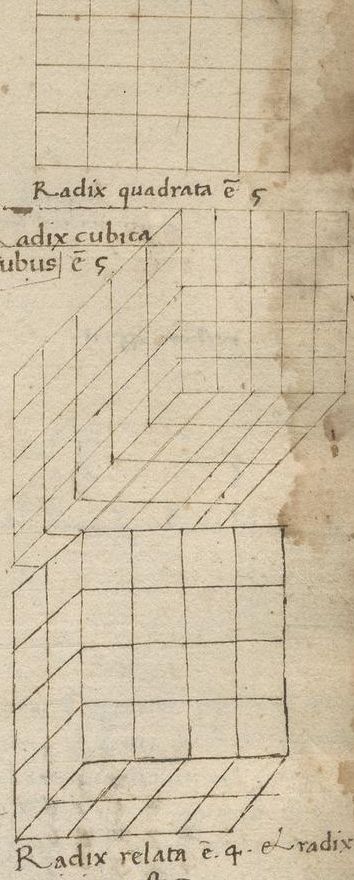 Radix quadrata ē 5
Radix cubica
cubus ē 5
Radix relata ē. 4. et radix